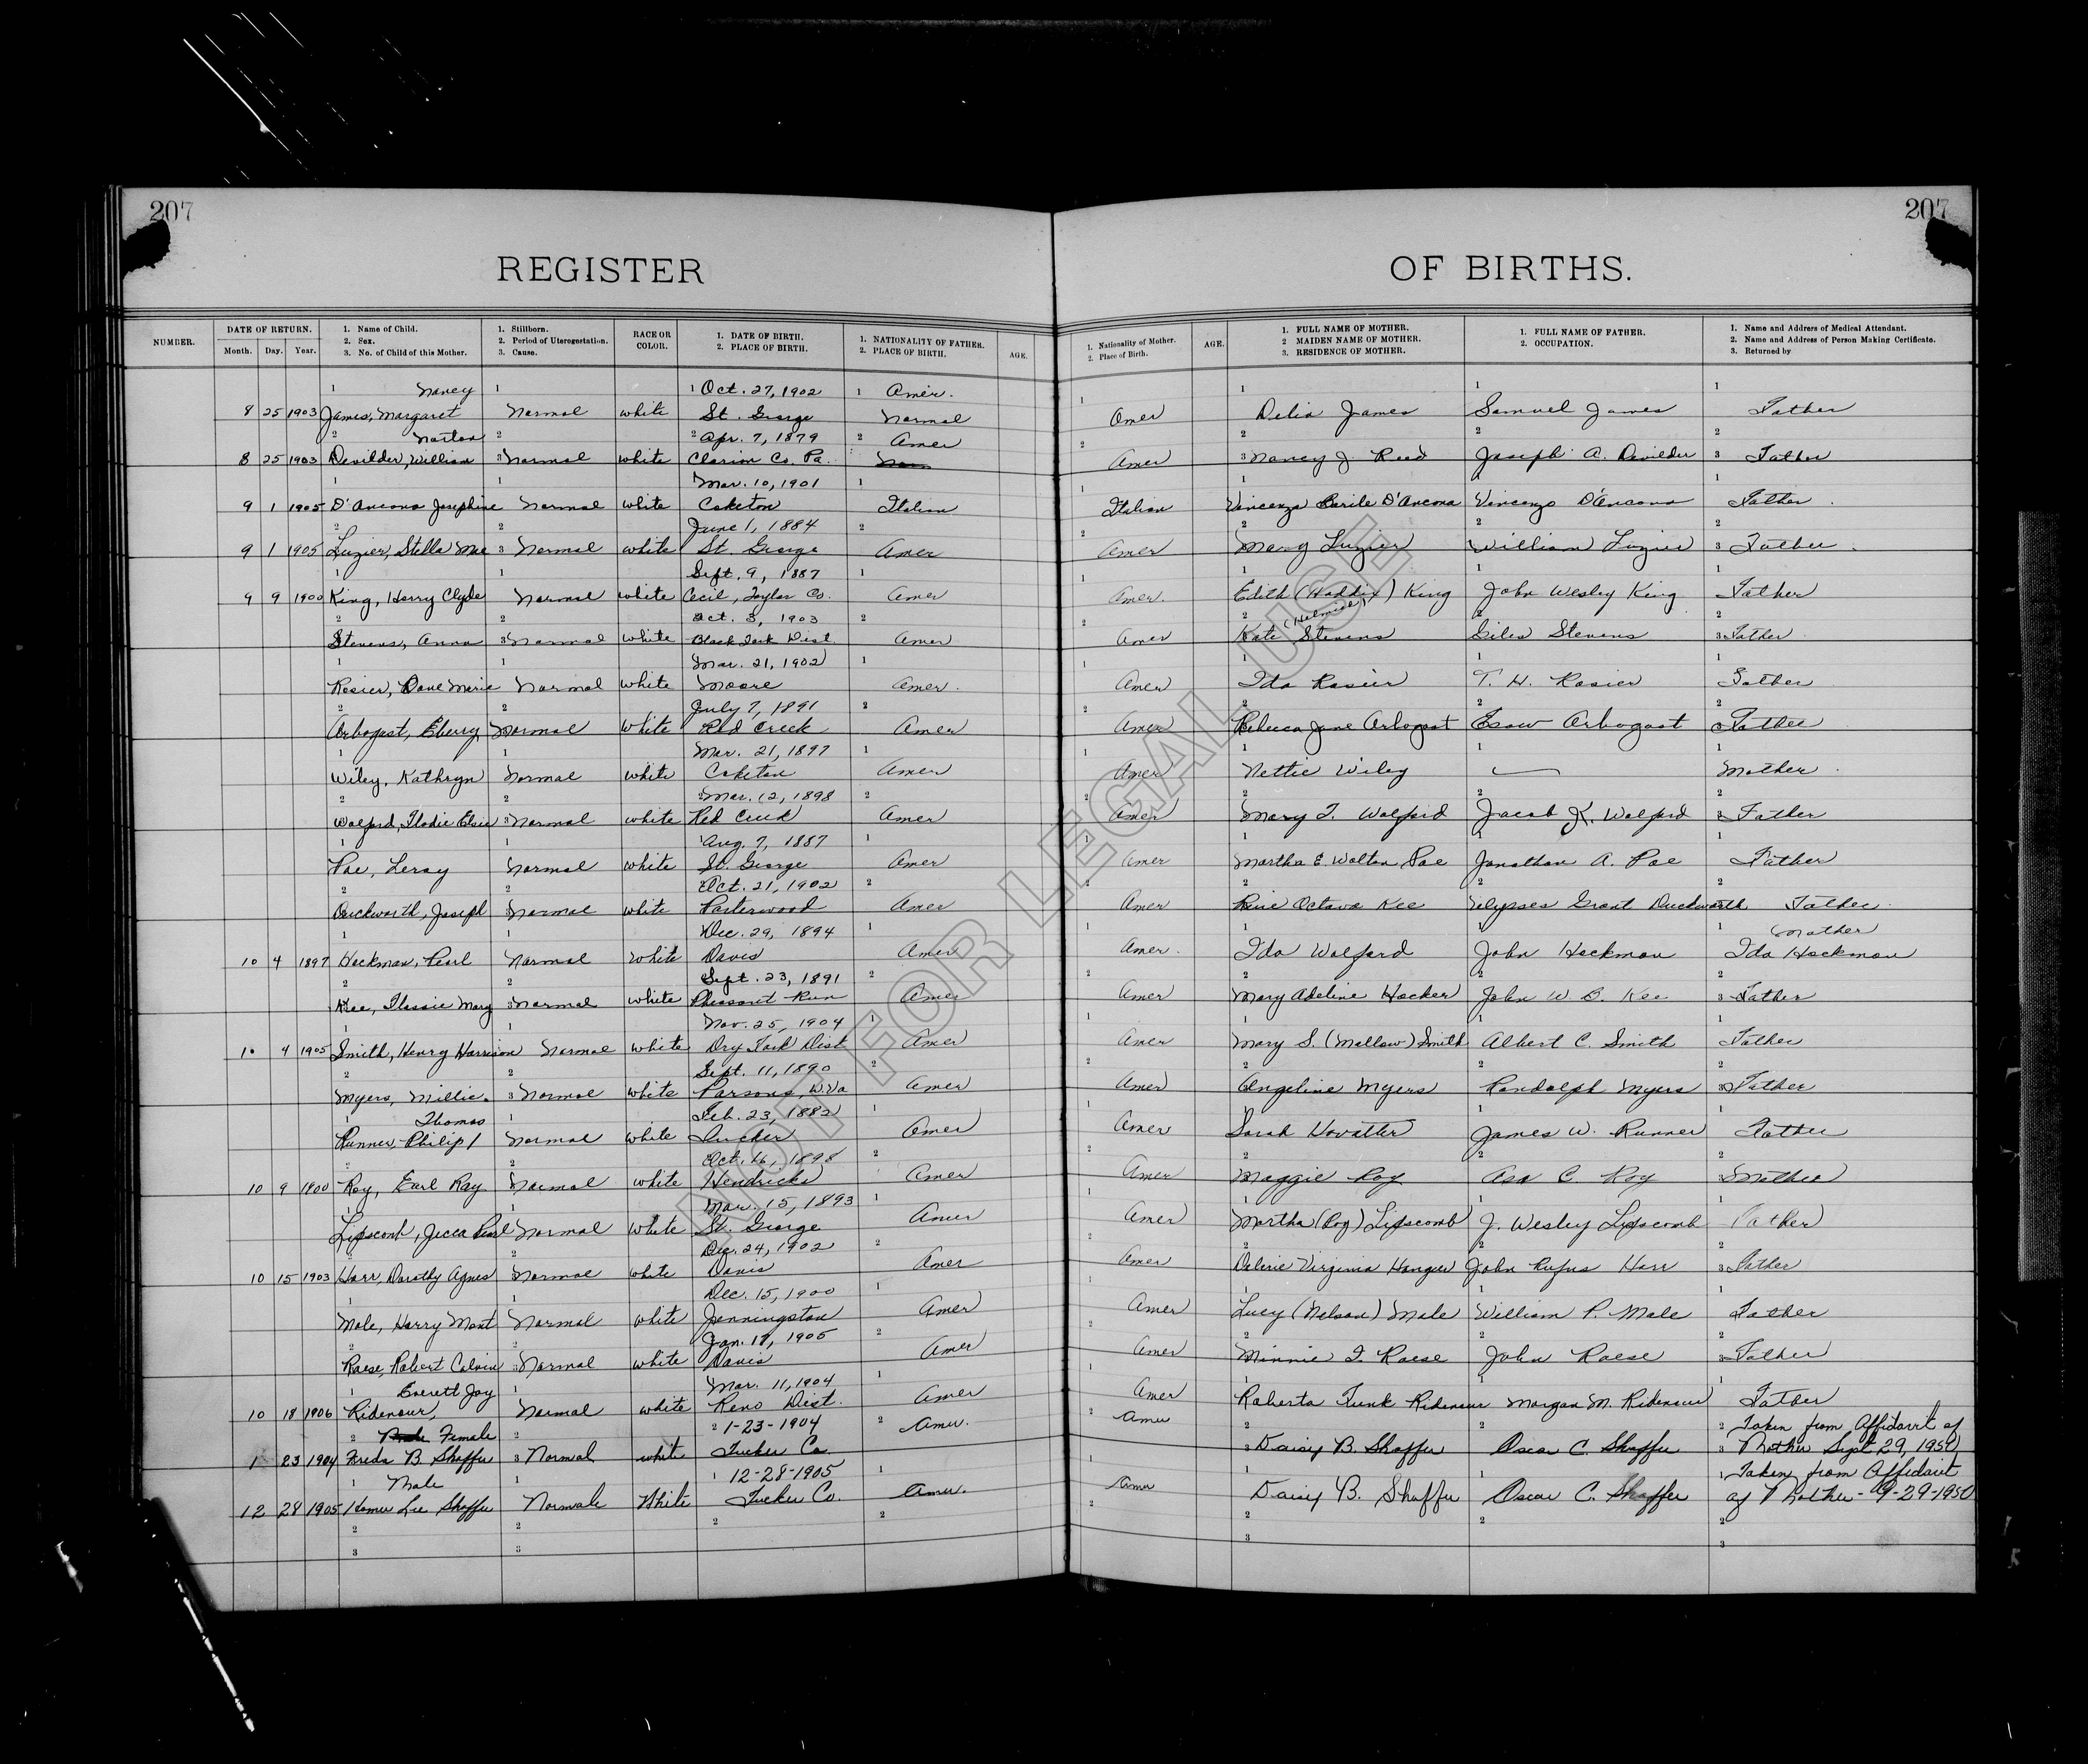 207
207
REGISTER OF BIRTHS.
NUMBER.
DATE OF RETURN.
Month. Day. Year.
1. Name of Child.
2. Sex.
3. No. of Child of this Mother.
1. Stillborn.
2. Period of Uterogestation.
3. Cause.
RACE OR
COLOR.
1. DATE OF BIRTH.
2. PLACE OF BIRTH.
1. NATIONALITY OF FATHER.
2. PLACE OF BIRTH.
AGE.
1. Nationality of Mother.
2. Place of Birth.
AGE.
1. FULL NAME OF MOTHER.
2 MAIDEN NAME OF MOTHER.
3. RESIDENCE OF MOTHER.
1. FULL NAME OF FATHER.
2. OCCUPATION.
1. Name and Address of Medical Attendant.
2. Name and Address of Person Making Certificate.
3. Returned by
Nancy Oct. 27, 1902 Amer.
8 25 1903 James, Margaret Normal white St. George Normal Amer Delia James Samuel James Father
Norton Apr. 7, 1879 Amer
8 25 1903 Devilder, William Normal white Clarion Co. Pa. Amer Nancy J. Reed Joseph A. Devilder Father
Mar. 10, 1901
9 1 1905 D'Ancona Josephine Normal white Coketon Italian Italian Vincenza Barile D'Ancona Vincenzo D'Ancona Father
June 1, 1884
9 1 1905 Luzier, Stella Mae Normal white St. George Amer Amer Mary Luzier William Luzier Father
Sept. 9, 1887
9 9 1900 King, Harry Clyde Normal white Cecil, Taylor Co. Amer Amer. Edith (Haddix) King John Wesley King Father
Oct. 3, 1903
Stevens, Anna Normal white Black Fork Dist Amer Amer Kate (Helmick) Stevens Giles Stevens Father
Mar. 21, 1902
Rosier, Dove Marie Normal white Moore Amer. Amer Ida Rosier T. H. Rosier Father
July 7, 1891
Arbogast, Eberry Normal white Red Creek Amer Amer Rebecca Jane Arbogast Esaw Arbogast Father
Mar. 21, 1897
Wiley, Kathryn Normal white Coketon Amer Amer Nettie Wiley Mother
Mar. 12, 1898
Wolford, Flodie Elsie Normal white Red Creek Amer Amer Mary F. Wolford Jacob K. Wolford Father
Aug. 7, 1887
Poe, Leroy Normal white St. George Amer Amer Martha E. Walton Poe Jonathan A. Poe Father
Oct. 21, 1902
Duckworth, Joseph Normal white Porterwood Amer Amer Rine Octava Kee Ulysses Grant Duckworth Father
Dec. 29, 1894 Mother
10 4 1897 Hockman, Pearl Normal White Davis Amer Amer. Ida Wolford John Hockman Ida Hockman
Sept. 23, 1891
Kee, Flossie Mary Normal white Pheasant Run Amer Amer Mary Adeline Hocker John W. B. Kee Father
Nov. 25, 1904
10 4 1905 Smith, Henry Harrison Normal white Dry Fork Dist Amer Amer Mary S. (Mallow) Smith Albert C. Smith Father
Sept. 11, 1890
Myers, Millie. Normal white Parsons, W.Va Amer Amer Angeline Myers Randolph Myers Father
Thomas Feb. 23, 1882
Runner, Philip Normal white Tucker Amer Amer Sarah Hovatter James W. Runner Father
Oct. 16, 1898
10 9 1900 Roy, Earl Ray Normal white Hendricks Amer Amer Maggie Roy Asa C. Roy Mother
Mar. 15, 1893
Lipscomb, Jecca Pearl Normal White St. George Amer Amer Martha (Roy) Lipscomb J. Wesley Lipscomb Father
Dec. 24, 1902
10 15 1903 Harr, Dorothy Agnes Normal white Davis Amer Amer Valerie Virginia Hanger John Rufus Harr Father
Dec. 15, 1900
Male, Harry Mont Normal white Jenningston Amer Amer Lucy (Nelson) Male William P. Male Father
Jan. 17, 1905
Raese, Robert Calvin Normal white Davis Amer Amer Minnie F. Raese John Raese Father
Everett Jay Mar. 11, 1904
10 18 1906 Ridenour, Normal white Reno Dist. Amer Amer Roberta Funk Ridenour Morgan M. Ridenour Father
Male Female 1-23-1904 Amer. Amer Taken from Affidavit of
1 23 1904 Freda B Shaffer Normal white Tucker Co. Daisy B. Shaffer Oscar C. Shaffer Mother Sept 29, 1950
Male 12-28-1905 Taken from Affidavit
12 28 1905 Homer Lee Shaffer Normale White Tucker Co. Amer. Amer Daisy B. Shaffer Oscar C. Shaffer of Mother - 9-29-1950
NOT FOR LEGAL USE